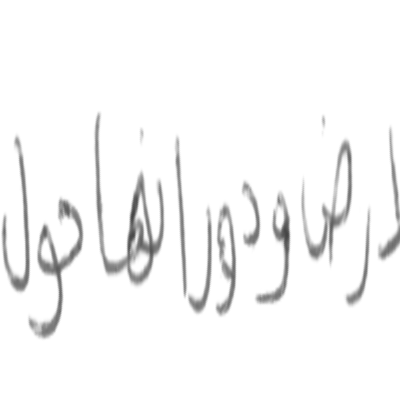 لارض ودورانها حول